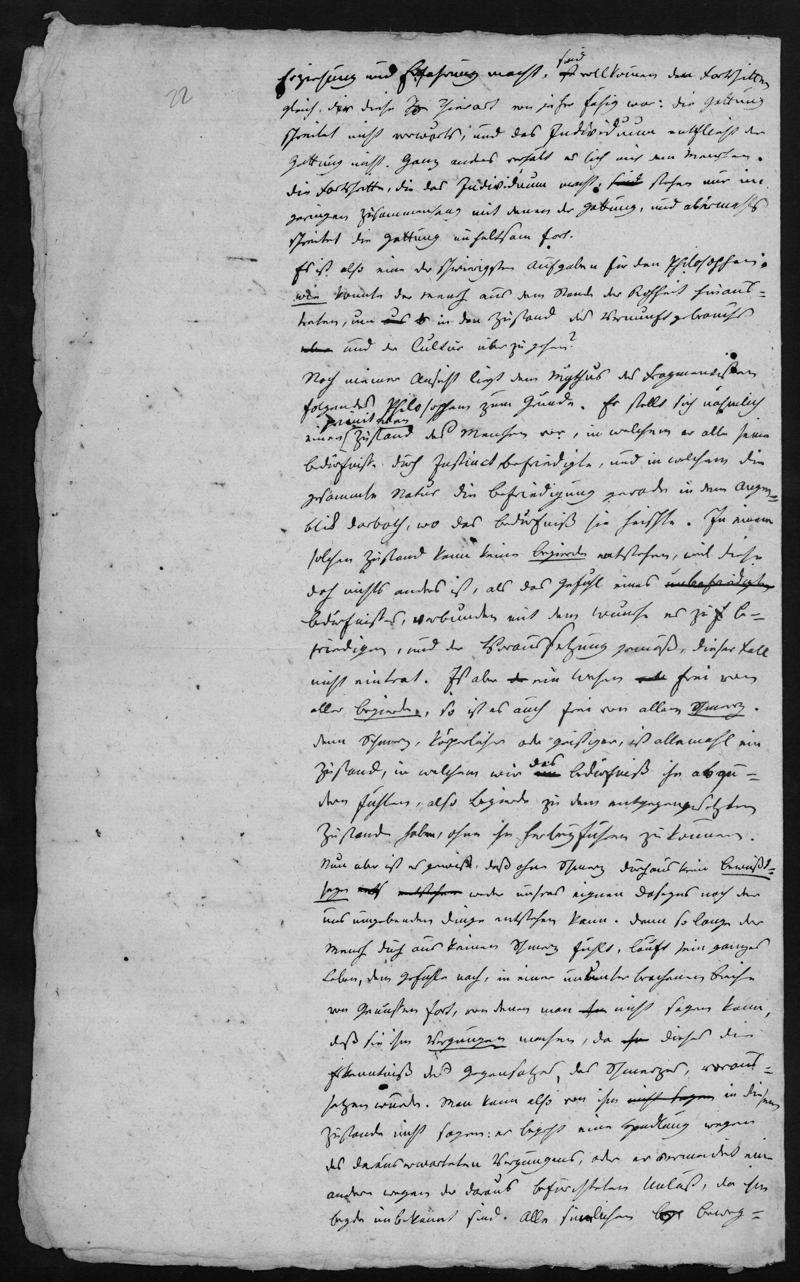 22
Erziehung und Erfahrung macht, sind vollkommen den Fortschritten
gleich, deren diese Thierart von jeher fähig war: die Gattung
schreitet nicht vorwärts, und das Individuum entflieht der
Gattung nicht. Ganz anders verhält es sich mit dem Menschen.
Die Fortschritte, die das Individuum macht, stehen nur in
geringem Zusammenhang mit denen der Gattung, und abermahls
schreitet die Gattung unaufhaltsam fort.
Es ist also eine der schwierigsten Aufgaben für den Philosophen:
wie konnte der Mensch aus dem Stande der Rohheit hinaus-
treten, um in den Zustand des Vernunftgebrauchs
und der Cultur überzugehen?
Nach meiner Ansicht liegt dem Mythus des Fragmentisten
folgendes Philosophem zum Grunde. Er stellt sich nähmlich
einen primitiven Zustand des Menschen vor, in welchem er alle seine
Bedürfnisse durch Instinct befriedigte, und in welchem die
gesammte Natur die Befriedigung gerade in dem Augen-
blick darboth, wo das Bedürfniß sie heischte. In einem
solchen Zustand kann keine Begierde entstehen, weil diese
doch nichts anders ist, als das Gefühl eines unbefriedigten
Bedürfnisses, verbunden mit dem Wunsche es zu be-
friedigen, und der Voraussetzung gemäß, dieser Fall
nicht eintrat. Ist aber ein Wesen frei von
aller Begierde, so ist es auch frei von allem Schmerz.
Denn Schmerz, körperlicher oder geistiger, ist allemahl ein
Zustand, in welchem wir das Bedürfniß ihn abzuän-
dern fühlen, also Begierde zu dem entgegengesetzten
Zustande haben, ohne ihn herbeyführen zu können.
Nun aber ist es gewiß, daß ohne Schmerz durchaus kein Bewußt-
seyn entstehen weder unsres eignen Daseyns noch der
uns umgebenden Dinge entstehen kann. Denn so lange der
Mensch durchaus keinen Schmerz fühlt, läuft sein ganzes
Leben, dem Gefühle nach, in einer ununterbrochenen Reihe
von Genüssen fort, von denen man nicht sagen kann,
daß sie ihm Vergnügen machen, da dieses die
Erkenntniß des Gegensatzes, des Schmerzes, voraus-
setzen würde. Man kann also von ihm nicht sagen in diesem
Zustande nicht sagen: er begeht eine Handlung wegen
des daraus erwarteten Vergnügens, oder er vermeidet eine
andere wegen der daraus befürchteten Unlust, da ihm
beyde unbekannt sind. Alle sinnlichen Beweg-